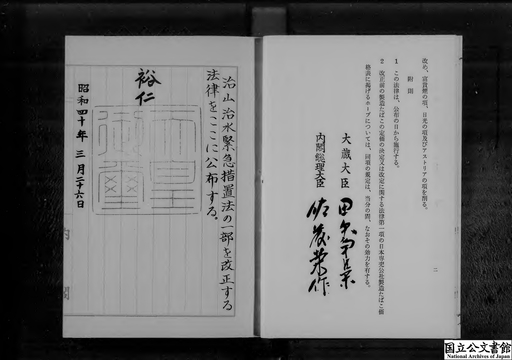 改め、富貴煙の項、日光の項及びアストリアの項を削る。
附則
1 この法律は、公布の日から施行する。
2 改正前の製造たばこの定価の決定又は改定に関する法律第一項の日本専売公社製造たばこ価
格表に掲げるホープについては、同項の規定は、当分の間、なおその効力を有する。
大蔵大臣 田中角栄
内閣総理大臣 佐藤栄作
二
治山治水緊急措置法の一部を改正する
法律をここに公布する。
裕仁
天皇
御璽
昭和四十年三月二十六日
内閣
国立公文書館
National Archives of Japan